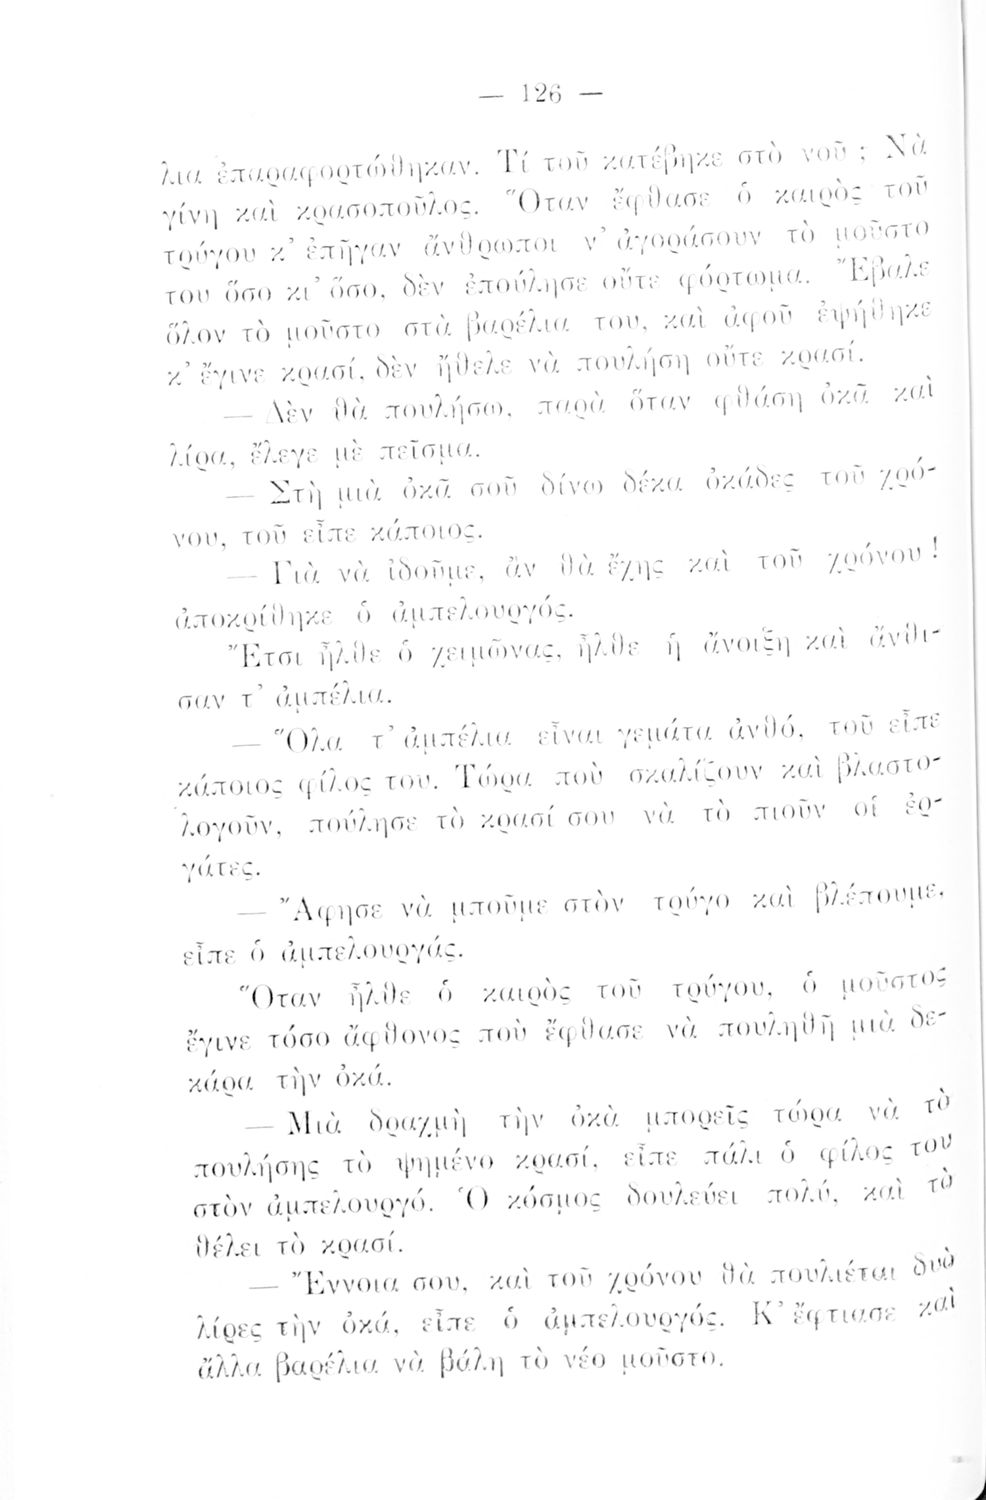 — 126 —
λια ἐπαραφορτώθηκαν. Τί τοῦ κατέβηκε στὸ νοῦ ; Νὰ
γίνῃ καὶ κρασοποῦλος. Ὅταν ἔφθασε ὁ καιρὸς τοῦ
τρύγου κ᾽ ἐπῆγαν ἄνθρωποι ν᾽ ἀγοράσουν τὸ μοῦστο
του ὅσο κι᾽ ὅσο, δὲν ἐπούλησε οὔτε φόρτωμα. Ἔβαλε
ὅλον τὸ μοῦστο στὰ βαρέλια του, καὶ ἀφοῦ ἐψήθηκε
κ᾽ ἔγινε κρασί, δὲν ἤθελε νὰ πουλήσῃ οὔτε κρασί.
— Δὲν θὰ πουλήσω, παρὰ ὅταν φθάσῃ ὀκᾶ καὶ
λίρα, ἔλεγε μὲ πεῖσμα.
— Στὴ μιὰ ὀκᾶ σοῦ δίνω δέκα ὀκάδες τοῦ χρό-
νου, τοῦ εἶπε κάποιος.
— Γιὰ νὰ ἰδοῦμε, ἂν θὰ ἔχῃς καὶ τοῦ χρόνου !
ἀποκρίθηκε ὁ ἀμπελουργός.
Ἔτσι ἦλθε ὁ χειμῶνας, ἦλθε ἡ ἄνοιξη καὶ ἄνθι-
σαν τ᾽ ἀμπέλια.
— Ὅλα τ᾽ ἀμπέλια εἶναι γεμάτα ἀνθό, τοῦ εἶπε
κάποιος φίλος του. Τώρα ποὺ σκαλίζουν καὶ βλαστο-
λογοῦν, πούλησε τὸ κρασί σου νὰ τὸ πιοῦν οἱ ἐρ-
γάτες.
— Ἄφησε νὰ μποῦμε στὸν τρύγο καὶ βλέπουμε,
εἶπε ὁ ἀμπελουργάς.
Ὅταν ἦλθε ὁ καιρὸς τοῦ τρύγου, ὁ μοῦστος
ἔγινε τόσο ἄφθονος ποὺ ἔφθασε νὰ πουληθῇ μιὰ δε-
κάρα τὴν ὀκά.
— Μιὰ δραχμὴ τὴν ὀκὰ μπορεῖς τώρα νὰ τὸ
πουλήσῃς τὸ ψημένο κρασί, εἶπε πάλι ὁ φίλος του
στὸν ἀμπελουργό. Ὁ κόσμος δουλεύει πολύ, καὶ τὸ
θέλει τὸ κρασί.
— Ἔννοια σου, καὶ τοῦ χρόνου θὰ πουλιέται δυὸ
λίρες τὴν ὀκά, εἶπε ὁ ἀμπελουργός. Κ᾽ ἔφτιασε καὶ
ἄλλα βαρέλια νὰ βάλῃ τὸ νέο μοῦστο.